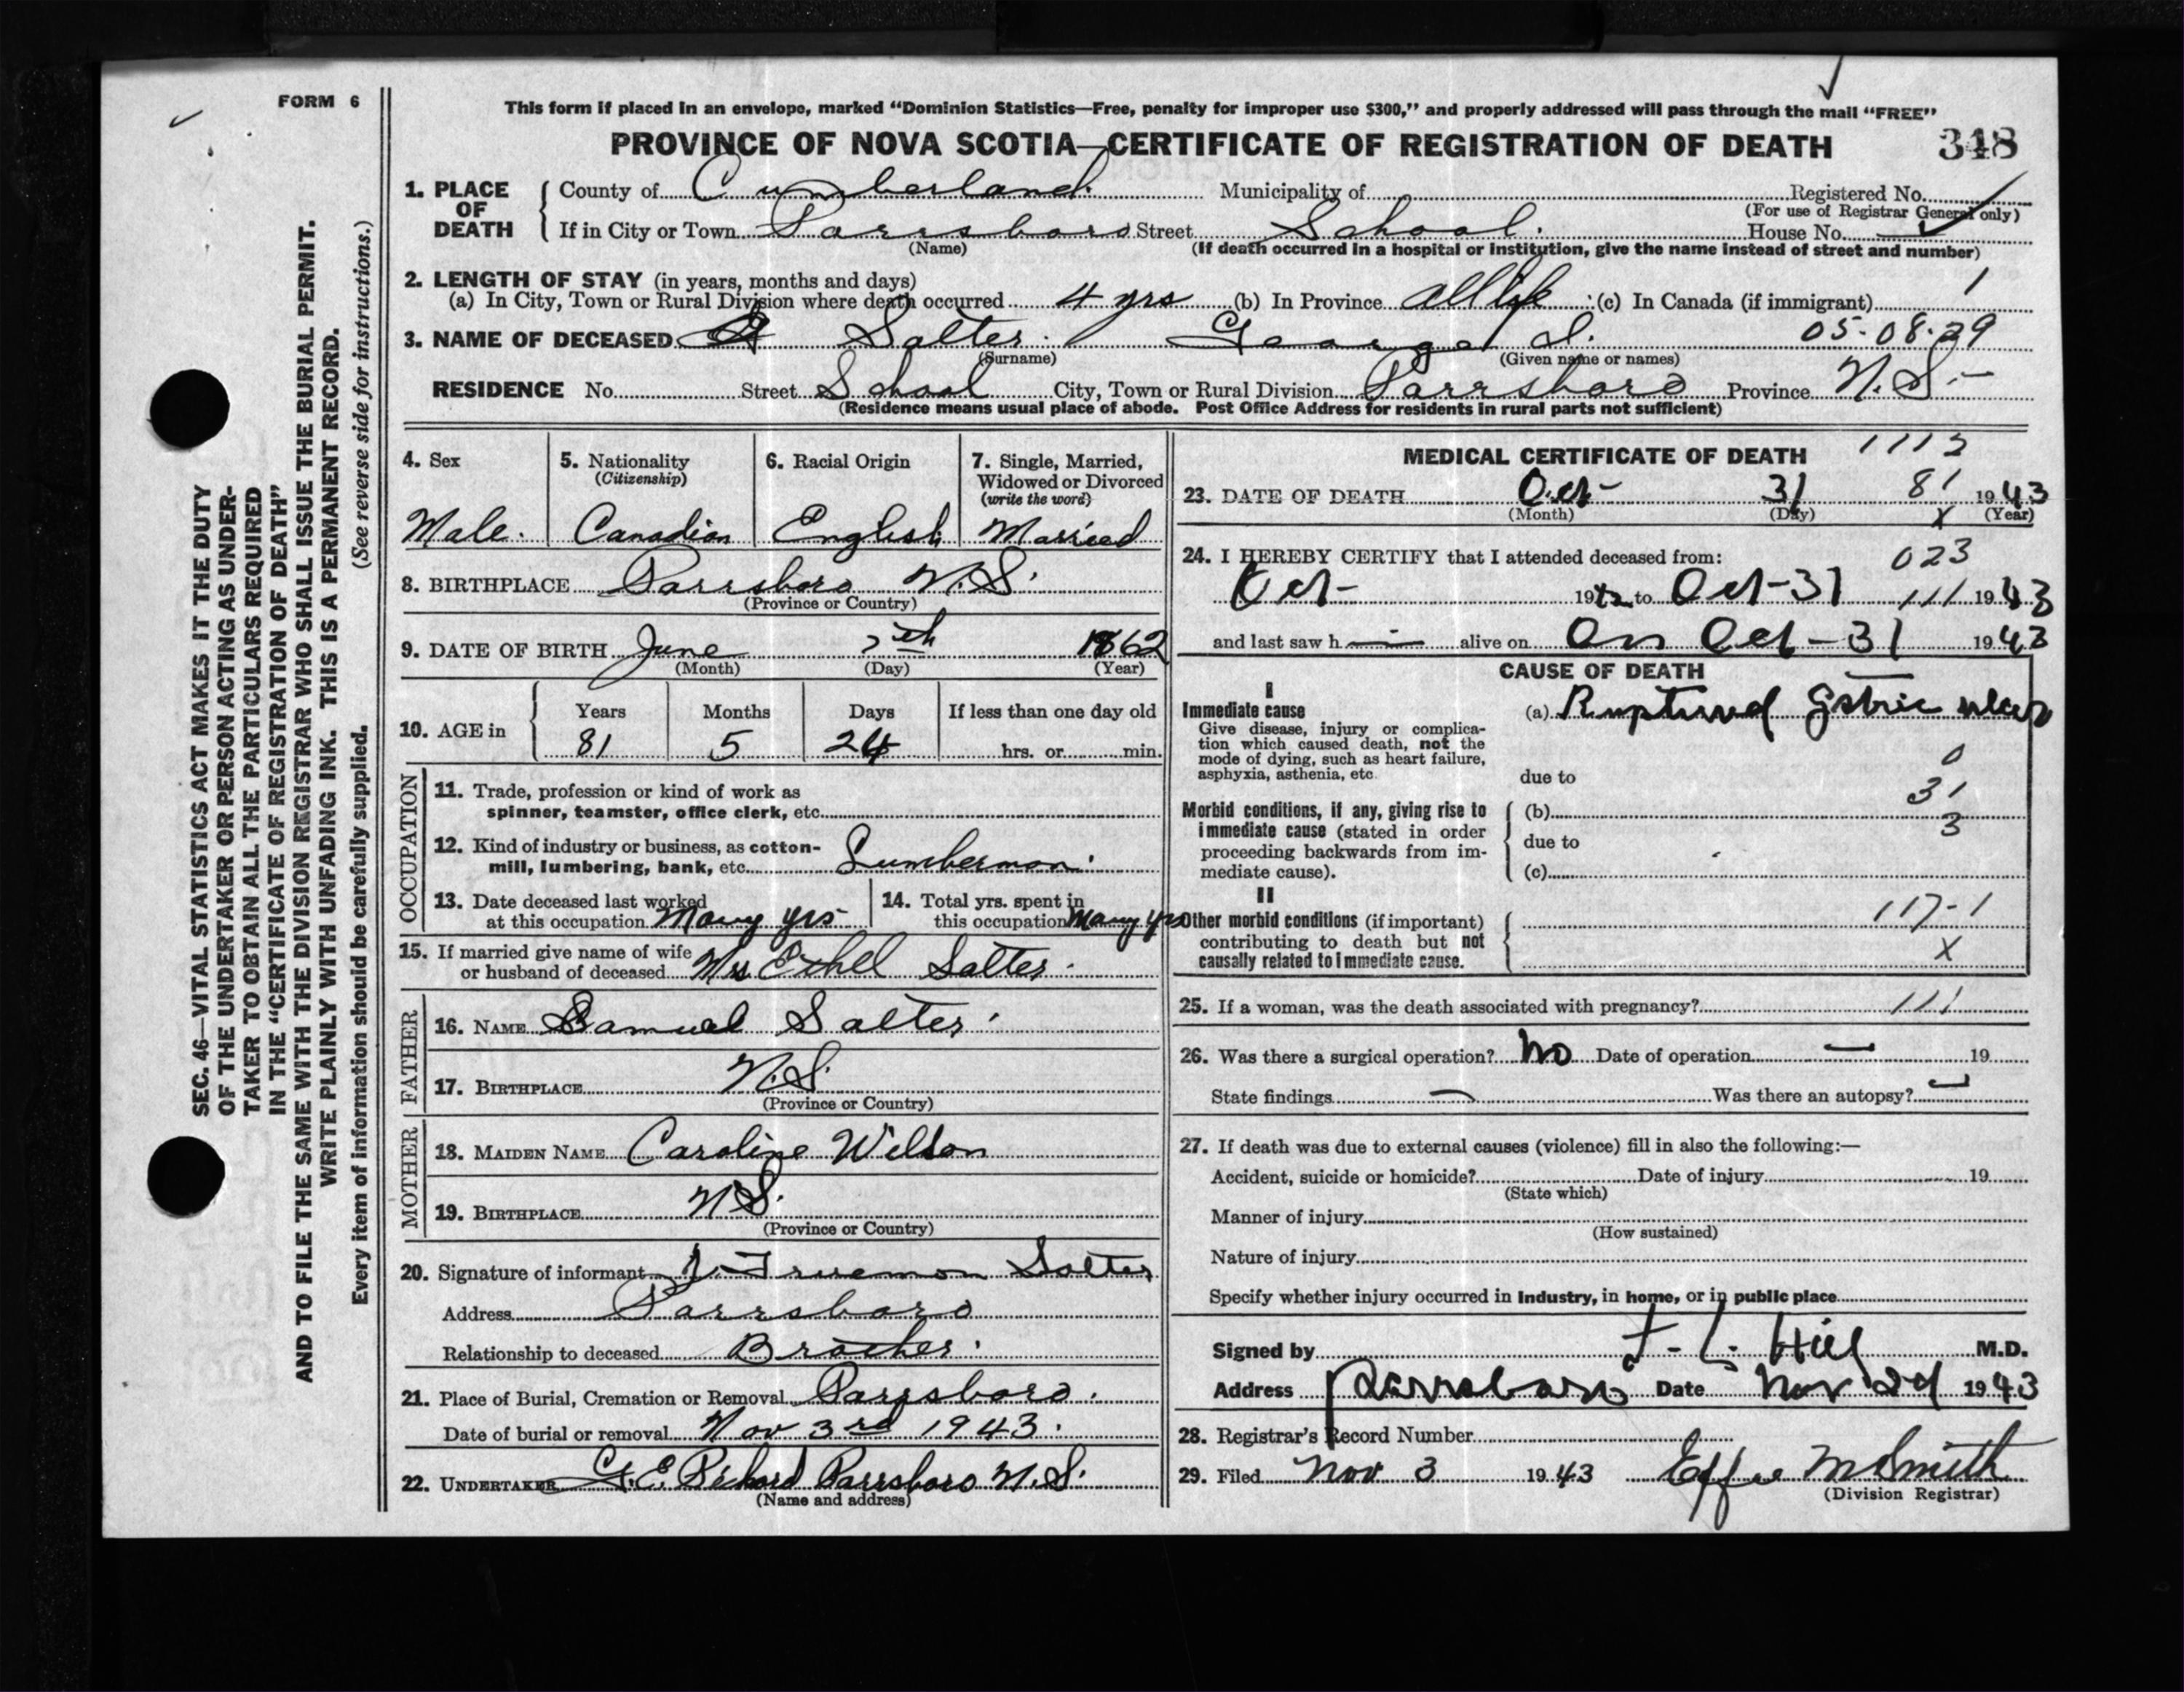 FORM 6
SEC. 46—VITAL STATISTICS ACT MAKES IT THE DUTY
OF THE UNDERTAKER OR PERSON ACTING AS UNDER-
TAKER TO OBTAIN ALL THE PARTICULARS REQUIRED
IN THE "CERTIFICATE OF REGISTRATION OF DEATH"
AND TO FILE THE SAME WITH THE DIVISION REGISTRAR WHO SHALL ISSUE THE BURIAL PERMIT.
WRITE PLAINLY WITH UNFADING INK. THIS IS A PERMANENT RECORD.
Every item of information should be carefully supplied. (See reverse side for instructions.)
This form if placed in an envelope, marked "Dominion Statistics—Free, penalty for improper use $300," and properly addressed will pass through the mail "FREE"
PROVINCE OF NOVA SCOTIA—CERTIFICATE OF REGISTRATION OF DEATH 348
1. PLACE OF DEATH County of Cumberland Municipality of Registered No.
(For use of Registrar General only)
If in City or Town Parrsboro Street School House No.
(Name) (If death occurred in a hospital or institution, give the name instead of street and number)
2. LENGTH OF STAY (in years, months and days)
(a) In City, Town or Rural Division where death occurred 4 yrs (b) In Province All life (c) In Canada (if immigrant) 1
3. NAME OF DECEASED Salter George 05-08-29
(Surname) (Given name or names)
RESIDENCE No. Street School City, Town or Rural Division Parrsboro Province N.S.
(Residence means usual place of abode. Post Office Address for residents in rural parts not sufficient)
4. Sex 5. Nationality (Citizenship) 6. Racial Origin 7. Single, Married, Widowed or Divorced (write the word)
Male. Canadian English Married
8. BIRTHPLACE Parrsboro N.S.
(Province or Country)
9. DATE OF BIRTH June 7th 1862
(Month) (Day) (Year)
10. AGE in Years Months Days If less than one day old
81 5 24 hrs. or min.
OCCUPATION
11. Trade, profession or kind of work as
spinner, teamster, office clerk, etc.
12. Kind of industry or business, as cotton-
mill, lumbering, bank, etc. Lumberman
13. Date deceased last worked
at this occupation Many yrs
14. Total yrs. spent in
this occupation Many yrs
15. If married give name of wife
or husband of deceased Mrs Ethel Salter
FATHER
16. NAME Samuel Salter
17. BIRTHPLACE N.S.
(Province or Country)
MOTHER
18. MAIDEN NAME Caroline Wilson
19. BIRTHPLACE N.S.
(Province or Country)
20. Signature of informant Trueman Salter
Address Parrsboro
Relationship to deceased Brother
21. Place of Burial, Cremation or Removal Parrsboro.
Date of burial or removal Nov 3rd 1943.
22. UNDERTAKER Parrsboro N.S.
(Name and address)
MEDICAL CERTIFICATE OF DEATH 1112
23. DATE OF DEATH Oct- 31 81 1943
(Month) (Day) X (Year)
24. I HEREBY CERTIFY that I attended deceased from: 023
Oct- 1942 to Oct-31 111 1943
and last saw h — alive on On Oct-31 1943
CAUSE OF DEATH
I
Immediate cause
Give disease, injury or complica-
tion which caused death, not the
mode of dying, such as heart failure,
asphyxia, asthenia, etc.
(a) Ruptured gstric ulcer
0
due to
31
Morbid conditions, if any, giving rise to
immediate cause (stated in order
proceeding backwards from im-
mediate cause).
(b)
3
due to
(c)
II
Other morbid conditions (if important)
contributing to death but not
causally related to immediate cause.
117-1
X
25. If a woman, was the death associated with pregnancy? 111
26. Was there a surgical operation? No Date of operation — 19
State findings — Was there an autopsy? —
27. If death was due to external causes (violence) fill in also the following:—
Accident, suicide or homicide? Date of injury 19
(State which)
Manner of injury
(How sustained)
Nature of injury
Specify whether injury occurred in industry, in home, or in public place
Signed by Hill M.D.
Address Parrsboro Date Nov 2d 1943
28. Registrar's Record Number
29. Filed Nov 3 1943 Effie M Smith
(Division Registrar)